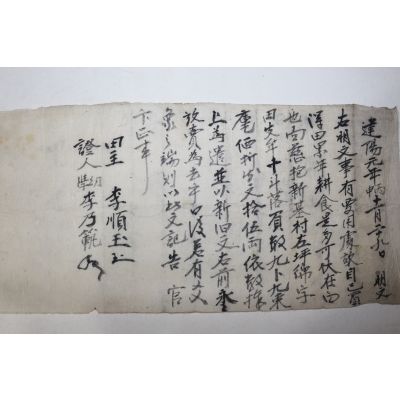 建陽元年丙申十一月日 明文
右明文事有要用處故自己買
得田累年耕食是多可伏在白
也面新基村左坪字
田牟十斗落負數九卜九束
庫価折文拾伍両依數捧
上爲遣並以新旧文右前永
放賣爲去乎日後若有文
象之端則以此文記告 官
卞正事
田主 李順玉
證人 幼學 李乃範